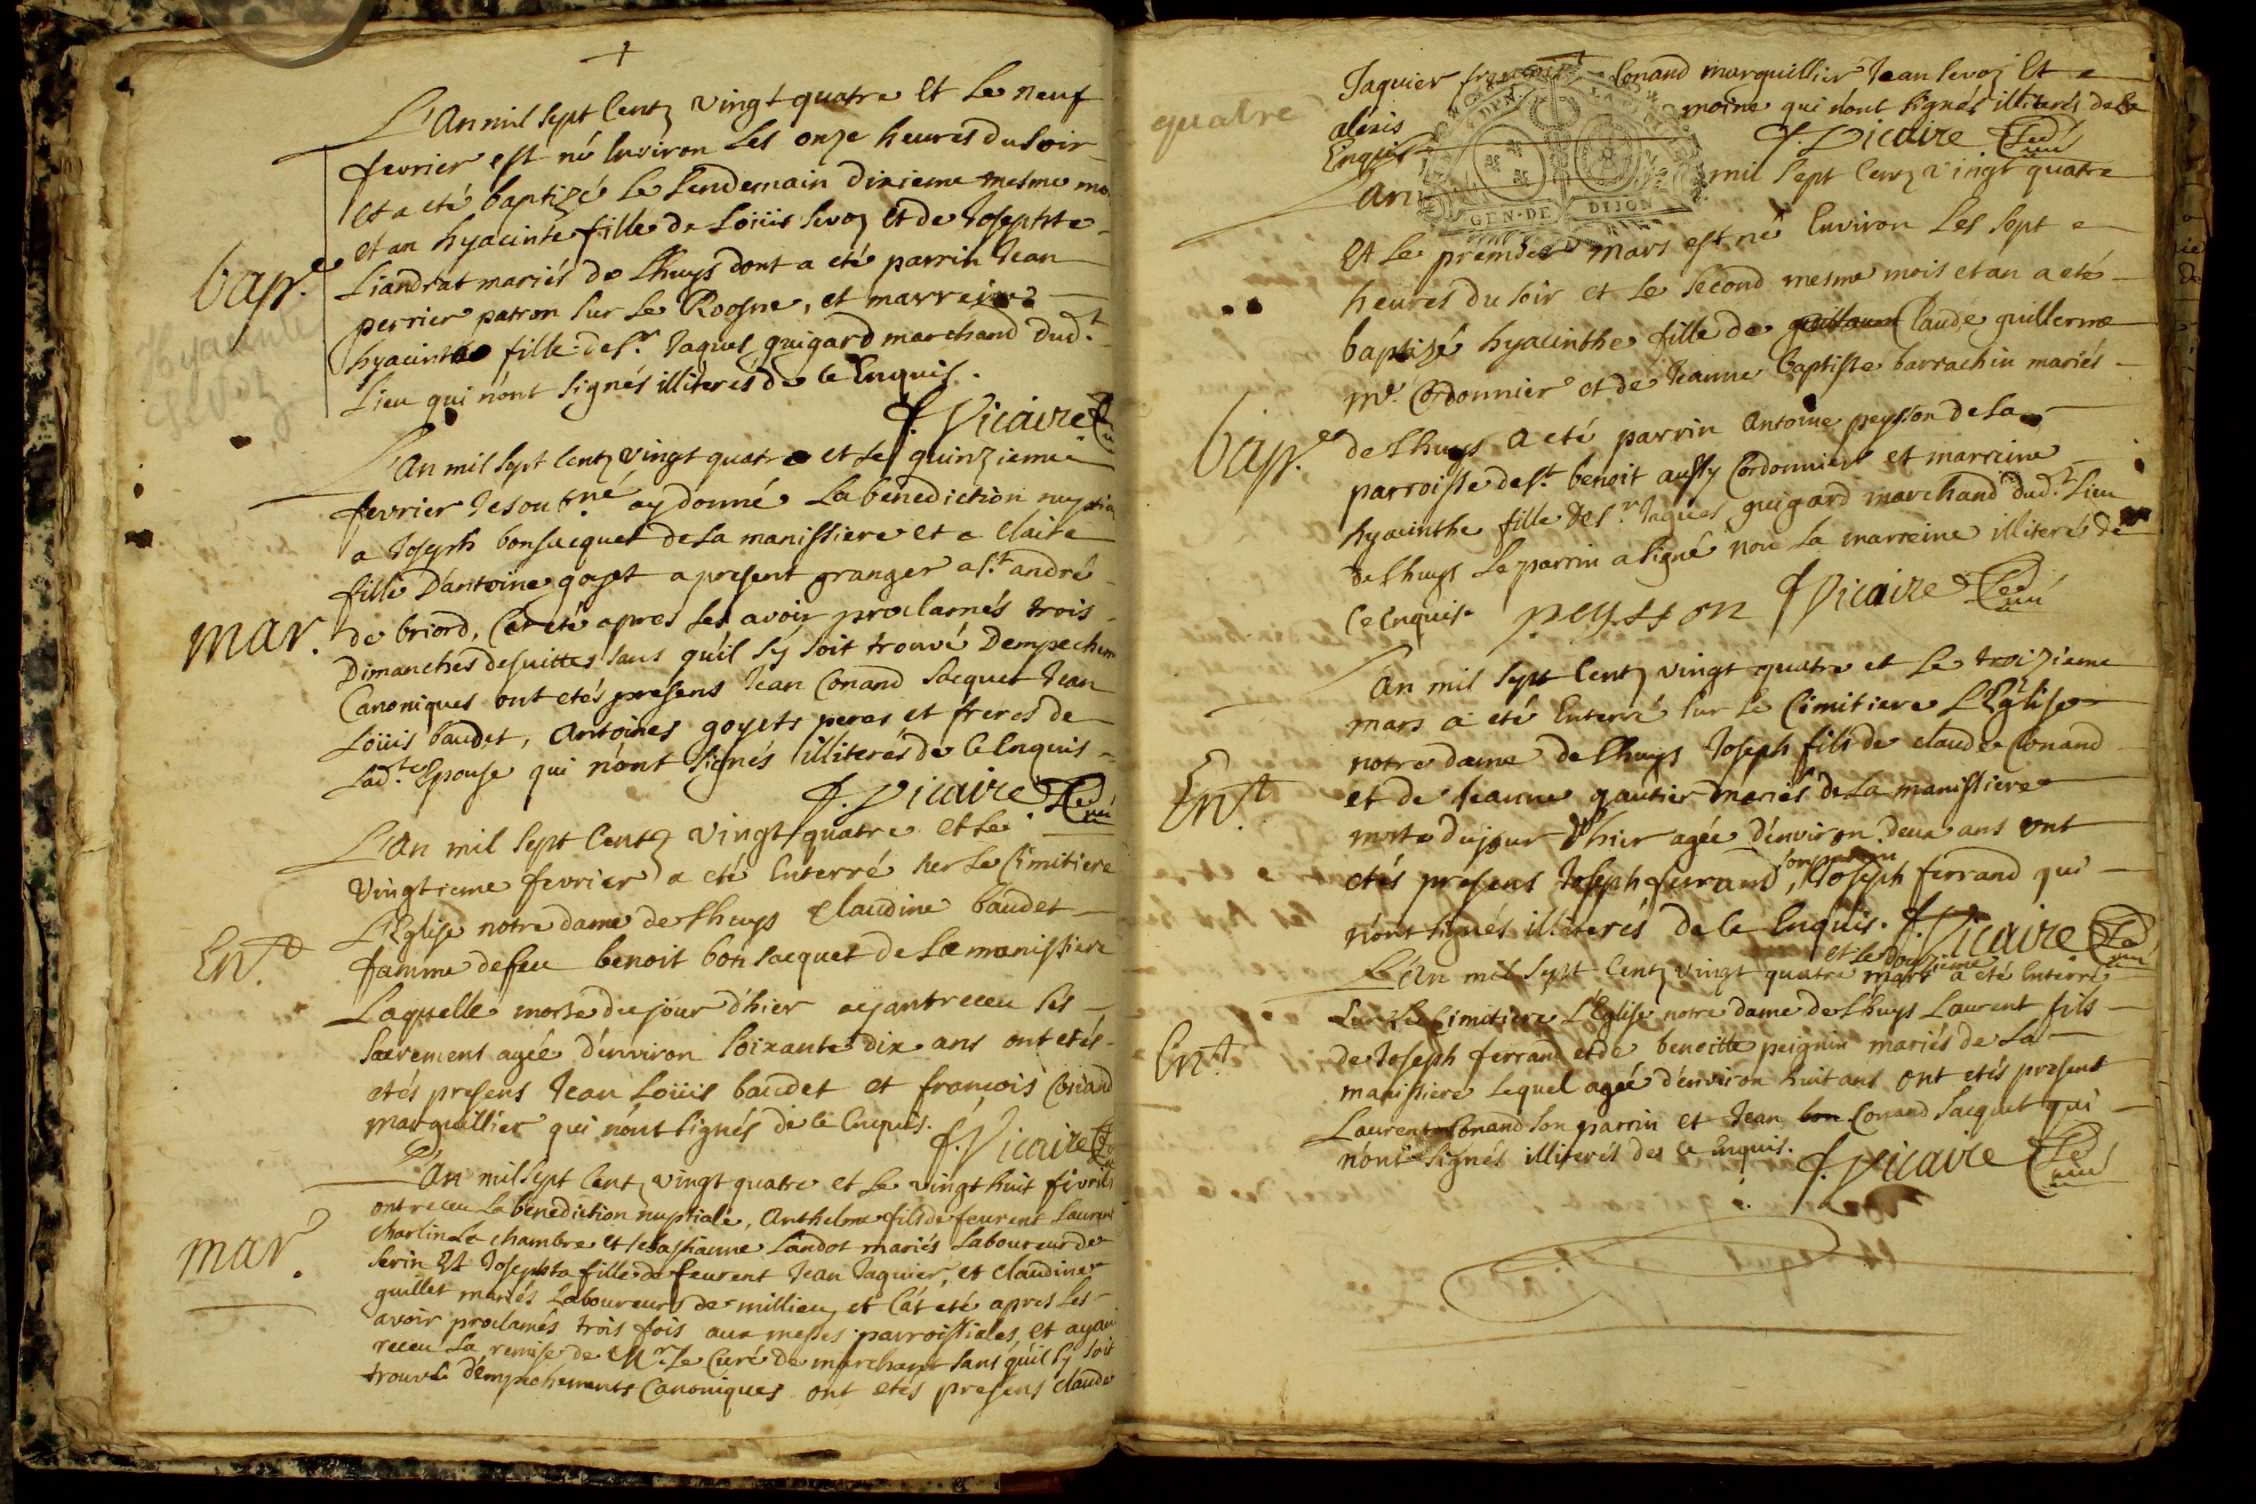 L'An mil sept Centz vingt quatre et le neuf
fevrier est né Environ Les onze heures du soir
et a eté baptizé le lendemain dixieme mesme mo
et an hyacinte fille de Loüis sevoz et de Josephte
Bapp.e
Liandrat mariés de Lhuys dont a eté parrin Jean
perrier patron sur le Roosne, et marreine
hyacinthe fille de s.r Jaques guigard marchand dud.t
Lieu qui n'ont signés illiterés de ce Enquis.
hyacinte
sevoz
f. Vicaire Curé
L'An mil sept Centz vingt quatre et le quinzieme
fevrier Je sous.né ay donné La benediction nuptia
a Joseph bonsacquet de la manissiere et a Claire
fille D'antoine goyet a present granger a s.t andré
mar.
de briord, Cet eté apres les avoir proclamés trois
Dimanches de suittes sans qu'il s'y soit trouvé D'empechem
Canoniques ont etés presens Jean Conand Sacquet Jean
Loüis baudet, Antoines goyets peres et freres de
Lad.te Epouse qui n'ont signés illiterés de ce Enquis
f. Vicaire Curé
L'An mil sept Centz vingt quatre et le
vingtieme fevrier a eté Enterré sur le Cimitiere
L'Eglise notre dame de Lhuys Claudine baudet
Ent.
famme de feu benoit bon sacquet de la manissiere
Laquelle morte du jour d'hier ayant receu ses
Sacremens agée d'environ soixante dix ans ont etés
etés presens Jean Loüis baudet et francois Conand
marguillier qui n'ont signés de ce Enquis.
f. Vicaire Curé
L'An mil sept Centz vingt quatre et le vingt huit fevrier
ont receu La benediction nuptiale, Anthelme fils de feurent Laurent
Charlin La chambre et sebastianne Landot mariés Laboureur de
mar.
serin Et Josephta fille de feurent Jean Jaquier, et claudine
guillet mariés Laboureurs de millieu, et C'at eté apres Les
avoir proclamés trois fois aux messes parroissiales, et ayan
receu La remise de Mr. Le Curé de marchant sans qu'il s'y soit
trouvé d'empechements Canoniques ont etés presens claude
quatre
Jaquier francois Conand marguillier Jean sevoz Et
alexis moine qui n'ont signés illiterés de ce
Enquis f. Vicaire Curé
GEN·DE DIJON
L'an mil sept Centz vingt quatre
Et le premier mars est né Environ Les sept
heures du soir et le second mesme mois et an a eté
baptizé hyacinthe fille de Claude guillerme
m.e Cordonnier et de Jeanne baptiste barrachin mariés
Bapp.e
de Lhuys a eté parrin Antoine peysson de la
parroisse de s.t benoit aussy Cordonnier et marreine
hyacinthe fille de s.r Jaques guigard marchand dud.t Lieu
de Lhuys Le parrin a signé non La marreine illiteré de
Ce Enquise peysson f Vicaire Curé
L'an mil sept Centz vingt quatre et le troizieme
mars a eté Enterré sur le Cimitiere L'Eglise
notre dame de Lhuys Joseph fils de claude Conand
Ent.
et de Jeanne gautier mariés de la manissiere
morte du jour d'hier agée d'environ deux ans ont
etés presens Joseph ferrand son parrin, Joseph ferrand qui
n'ont signés illiterés de ce Enquis. f. Vicaire Curé
L'An mil sept Centz vingt quatre et le douzieme mars a eté Enterré
sur le Cimitiere L'Eglise notre dame de Lhuys Laurent fils
Ent.
de Joseph ferrand et de benoitte peignin mariés de La
manissiere Lequel agée d'environ huit ans ont etés presens
Laurent Conand son parrin et Jean bon Conand Sacquet qui
n'ont signés illiterés de ce Enquis. f. Vicaire Curé